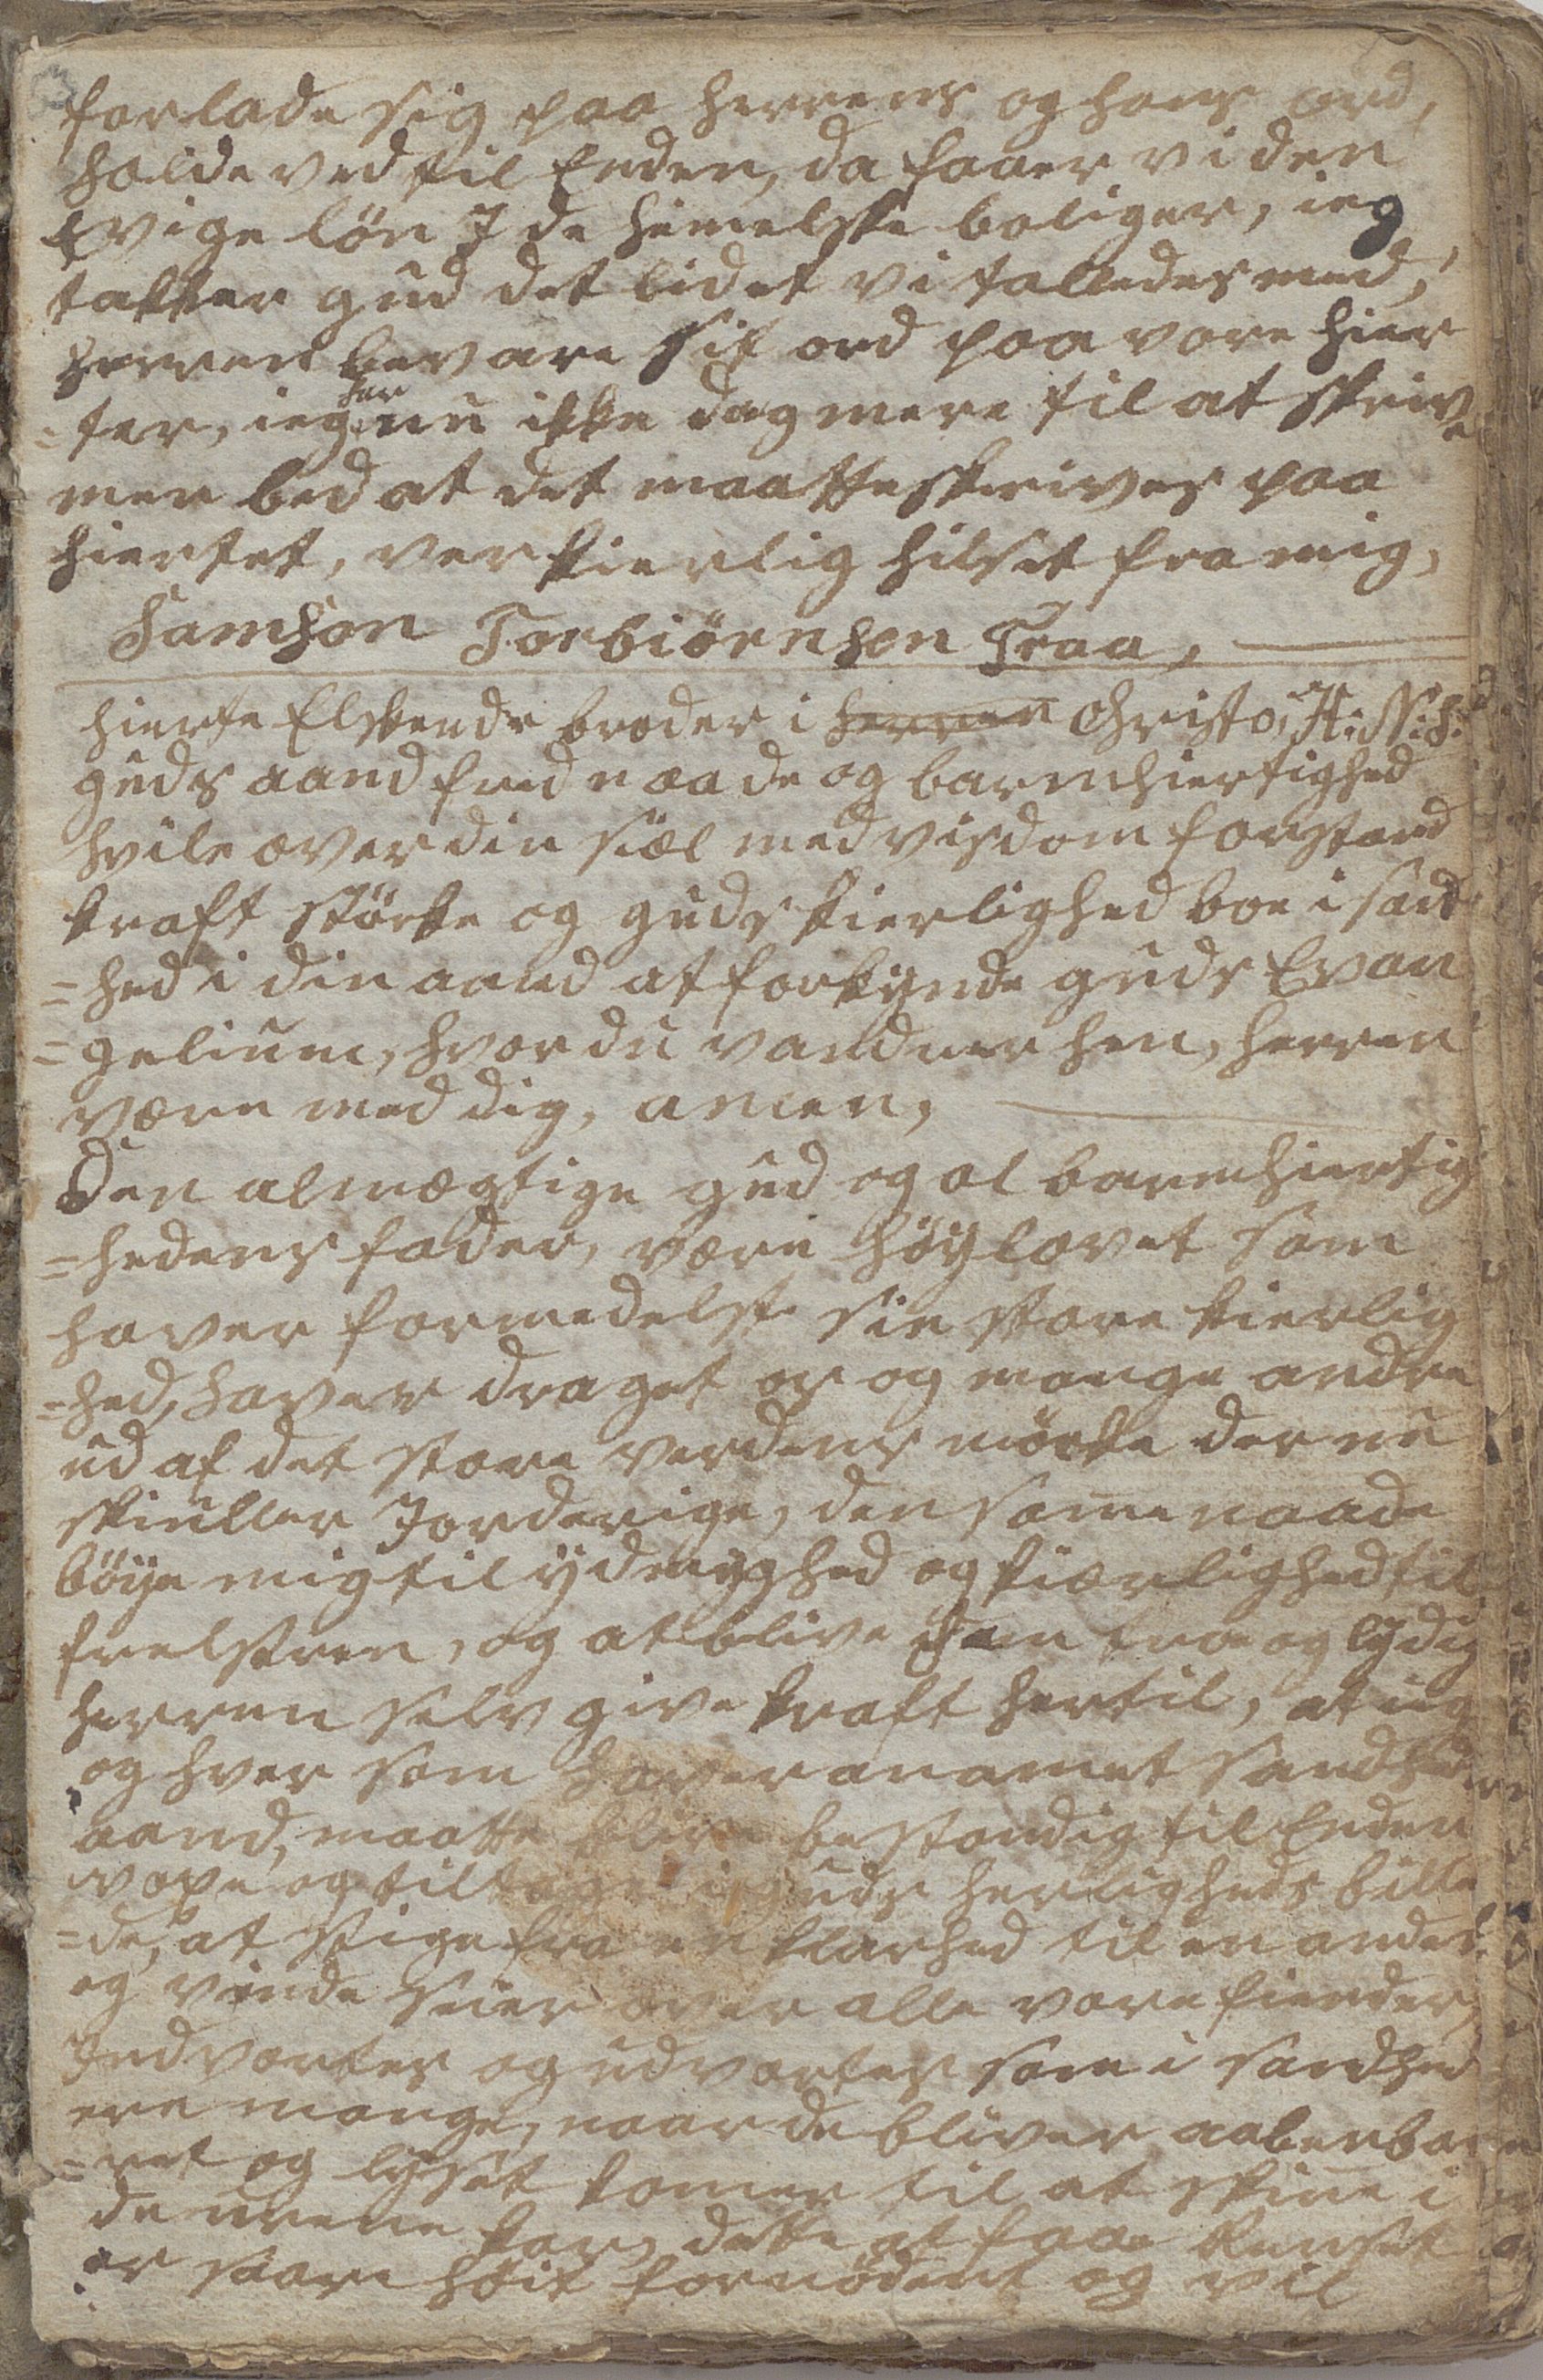 forlade sig paa herrens og hans ord,
holde ved til Enden, da faaer vi den
Evige lön I de himelske boliger, ieg
takker gud det lidet vi talledes med,
herren bevare sit ord paa vore hier
=ter, ieg har nu ikke dag mere til at skrive
men bed at det maatte skrives paa
hiertet, ver kierlig hilset fra mig,
Samson Torbiörnsen Traa,
hierte Elskende broder i herren Christo, H: N: H:
guds aand fred naade og barmhiertighed
hvile over din siæl med visdom forstand
kraft störke og guds kierlighed boe i sand
=hed i din aand at forkynde guds Evan
=gelium, hvor du vandrer hen, herren
være med dig, amen,
Den almægtige gud og al barmhiertig
=hedens fader, være höylovet som
haver formedelst sin store kierlig
=hed, haver draget os og mange andre
ud af det store verdens mörke der nu
skiuller Jorderige, den samme naade
böye mig til ydmyghed og kiærlighed til
frelseren, og at blive ham troe og lydig
herren selv give kraft hertil, at ieg
og hver som haver anamet sandheds
aand, maatte blive bestandig til Enden
voxe og tiltage i guds herligheds bille
=de, at stige fra en klarhed til en anden
og vinde seier over alle vore fiender,
Indvortes og udvortes som i sandhed
ere mange, naar de bliver aabenba
=ret og lyset komer til at skine i
de urene kar, dette at faae Renset
er saare höit fornödent og vil